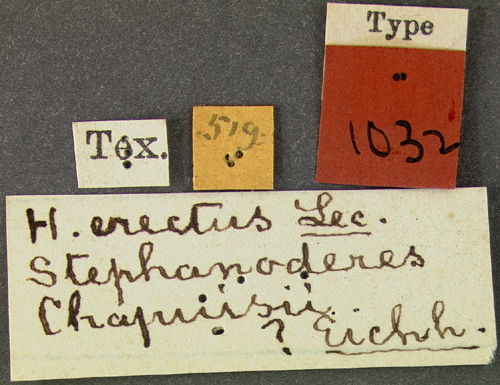 Type
1032
Tex.
519.
H. erectus Lec.
Stephanoderes
Chapuisii
? Eichh.